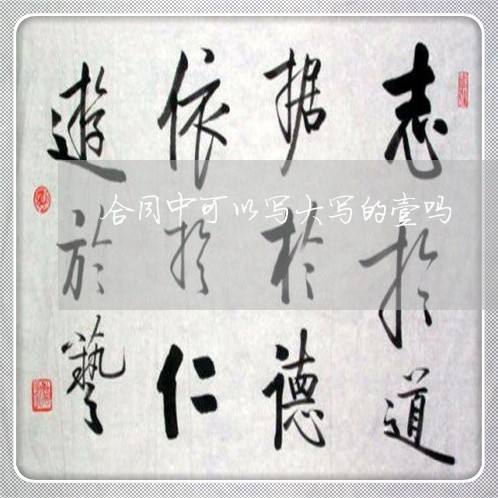 志於道
据於德
依於仁
遊於藝
合同中可以写大写的壹吗